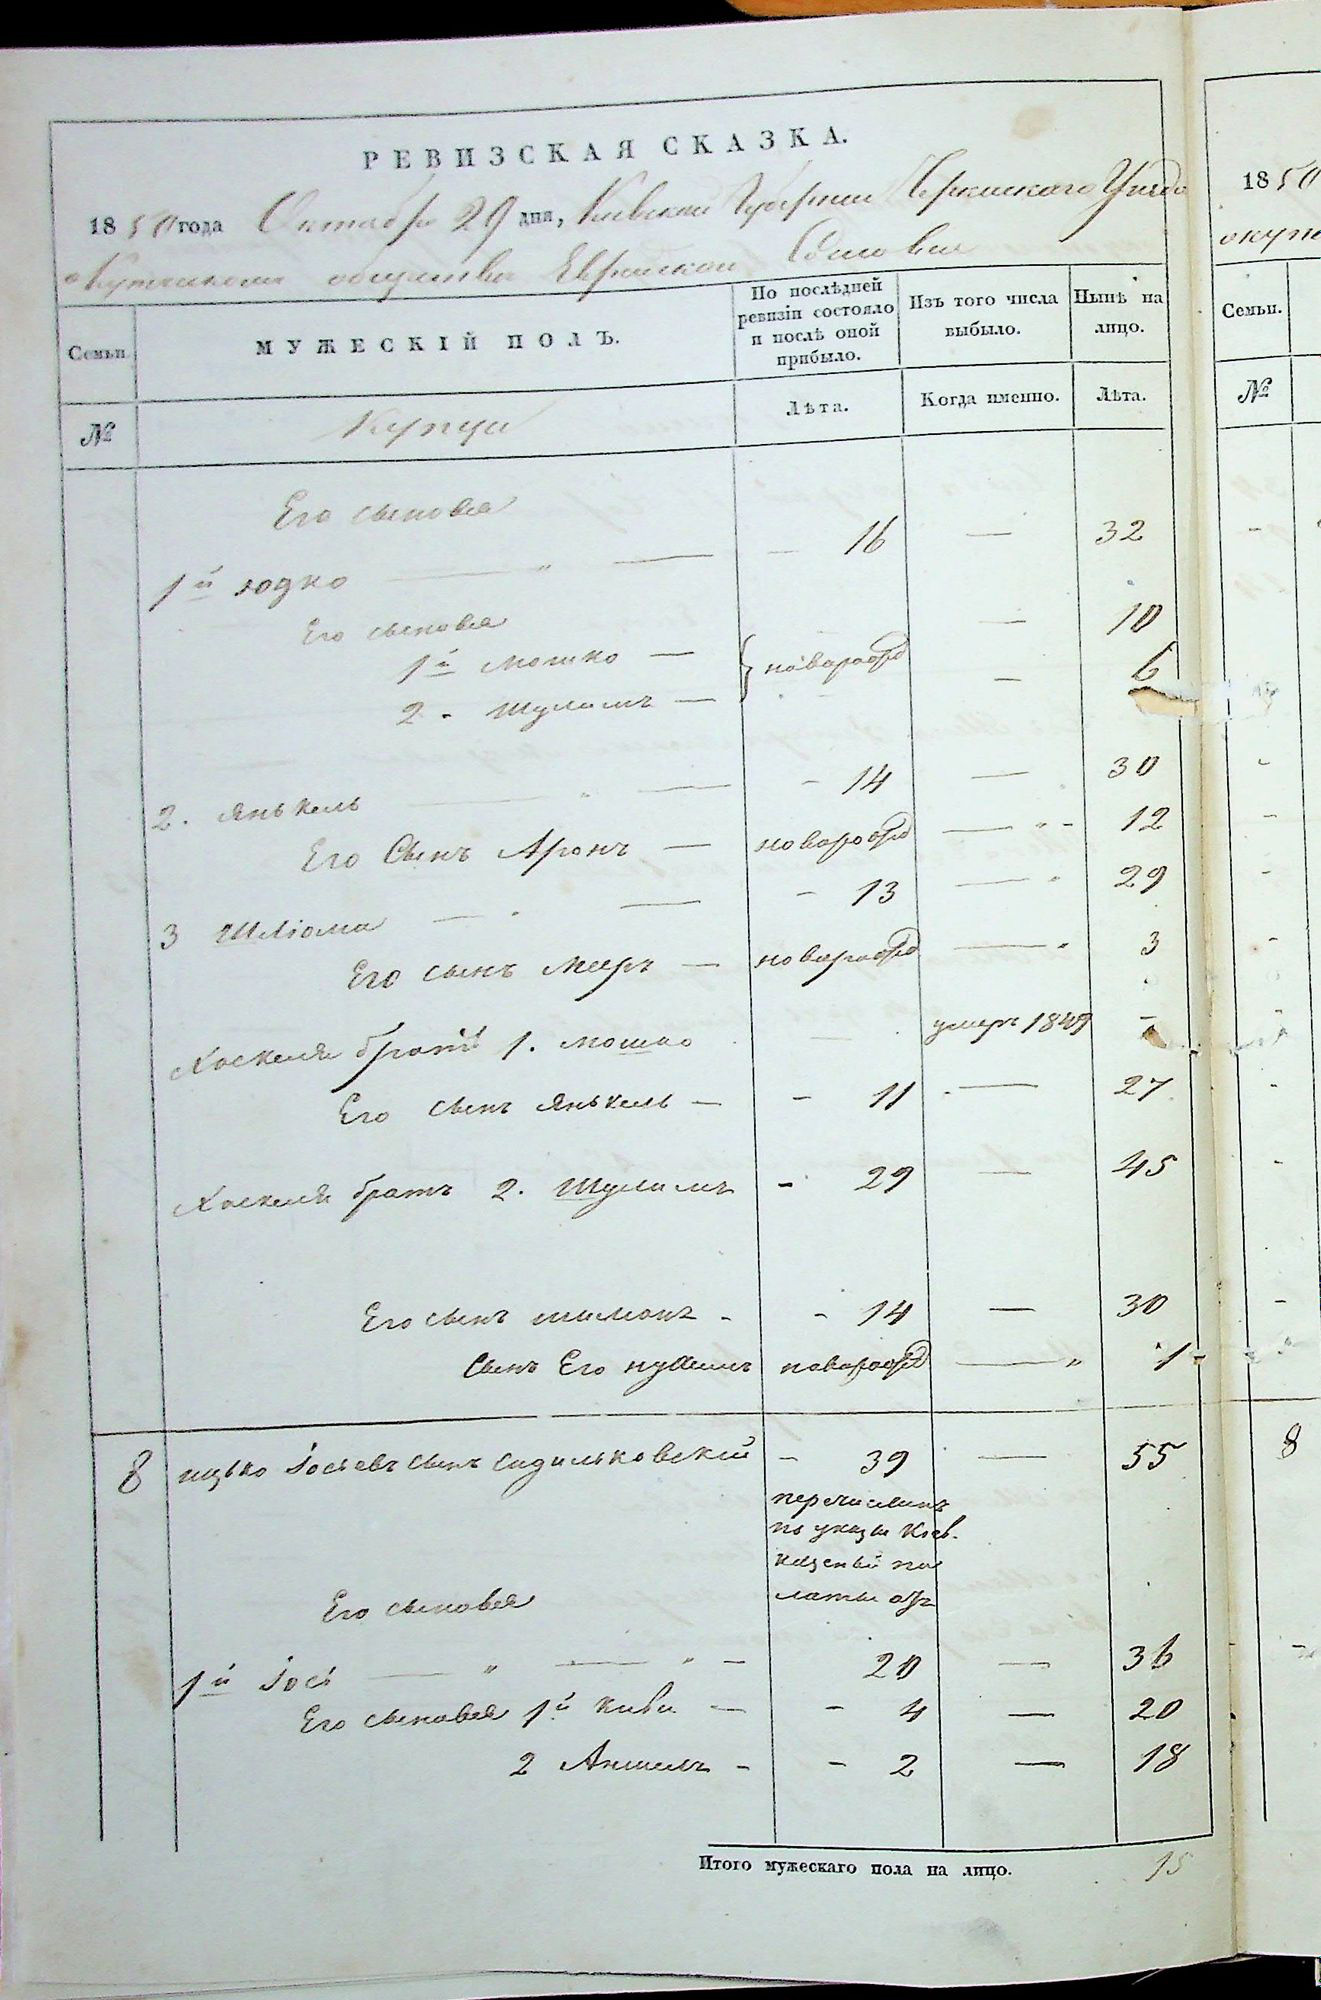 РЕВИЗСКАЯ СКАЗКА.
1850 года Октября 29 дня, Киевской Губернии Уезда
о Купеческом обществе Еврейском Сословия
Семьи. МУЖЕСКІЙ ПОЛЪ. По послѣдней ревизіи состояло и послѣ оной прибыло. Изъ того числа выбыло. Нынѣ на лицо.
№ Купцы Лѣта. Когда именно. Лѣта.
Его сыновья
1й Юдко — " — – 16 — 32
Его сыновья
1й Мошко — } новорожд — 10
2. - Шулимъ — — 6
2. Янькель — " — – 14 — 30
Его Сынъ Аронъ — новорожд — " – 12
3 Шліома — " — – 13 — " 29
Его сынъ Мееръ — новорожд — " 3
Хаскеля братъ 1. Мошко — умеръ 1849 –
Его сынъ Янькель — – 11 — 27
Хаскеля братъ 2. Шулимъ – 29 — 45
Его сынъ Шимонъ - – 14 — 30
Сынъ Его Нухимъ новорожд — " 1
8 Ицько Іосіевъ сынъ Судилковскій – 39 — 55
перечисленъ
по указу Кіев.
казеной па
латы
Его сыновья
1й Іось — " — " – 20 — 36
Его сыновья 1й Кива — – 4 — 20
2 Аншель - – 2 — 18
Итого мужескаго пола на лицо. 15
1850
Семьи.
№
8